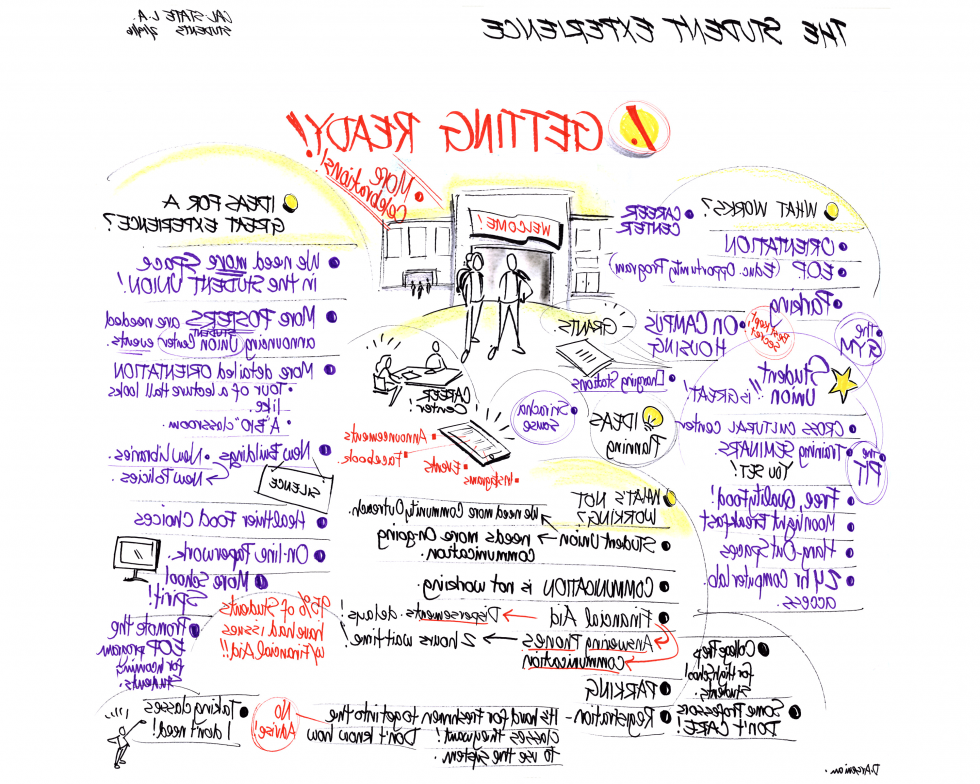 THE STUDENT EXPERIENCE
CAL-STATE L.A.
STUDENTS 2/9/16
! GETTING READY!
MORE
Celebrations!
WELCOME!
WHAT WORKS?
CAREER
CENTER
ORIENTATION
EOP (Educ. Opportunity Program)
Parking
the
GYM
Best kept
Secret
ON CAMPUS
HOUSING
GRANTS
Charging Stations
Student
Union!! is GREAT
CROSS CULTURAL Center
The
PIT
Training SEMINARS
YOU SET!
Free, Quality Food!
Moonlight Breakfast
Hang-Out Spaces
24 hr Computer lab
access.
College Prep
for High School
Students.
Some Professors
DON'T CARE!
IDEAS
Planning
Sriracha
Sause
CAREER
Center
Announcements
Facebook
Events
Instagrams
WHAT'S NOT
WORKING?
We need more Community Outreach.
Student Union → needs more On-going
Communication.
COMMUNICATION is not working.
Financial Aid → Dispersements. delays!
Answering Phones → 2 hours wait time!
Communication
PARKING
Registration - It's hard for Freshmen to get into the
classes they want! Don't know how
to use the system.
No
Advise!
95% of Students
have had issues
w/ Financial Aid!!
IDEAS FOR A
GREAT EXPERIENCE?
We need more Space
in the STUDENT UNION!
More POSTERS are needed
STUDENT
announcing Union Center events.
More detailed ORIENTATION
• Tour of a lecture Hall looks
like.
• A "BIO" classroom.
New Buildings • New Libraries.
→ New Policies
SILENCE
Healthier Food Choices
On-line Paperwork.
More School
Spirit!
Promote the
EOP program
for incoming
Students.
Taking classes
I don't need!